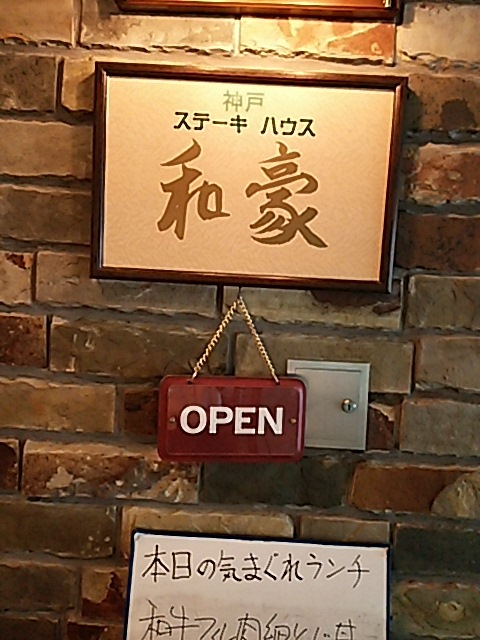 神戸
ステーキ ハウス
和豪
OPEN
本日の気まぐれランチ
和牛